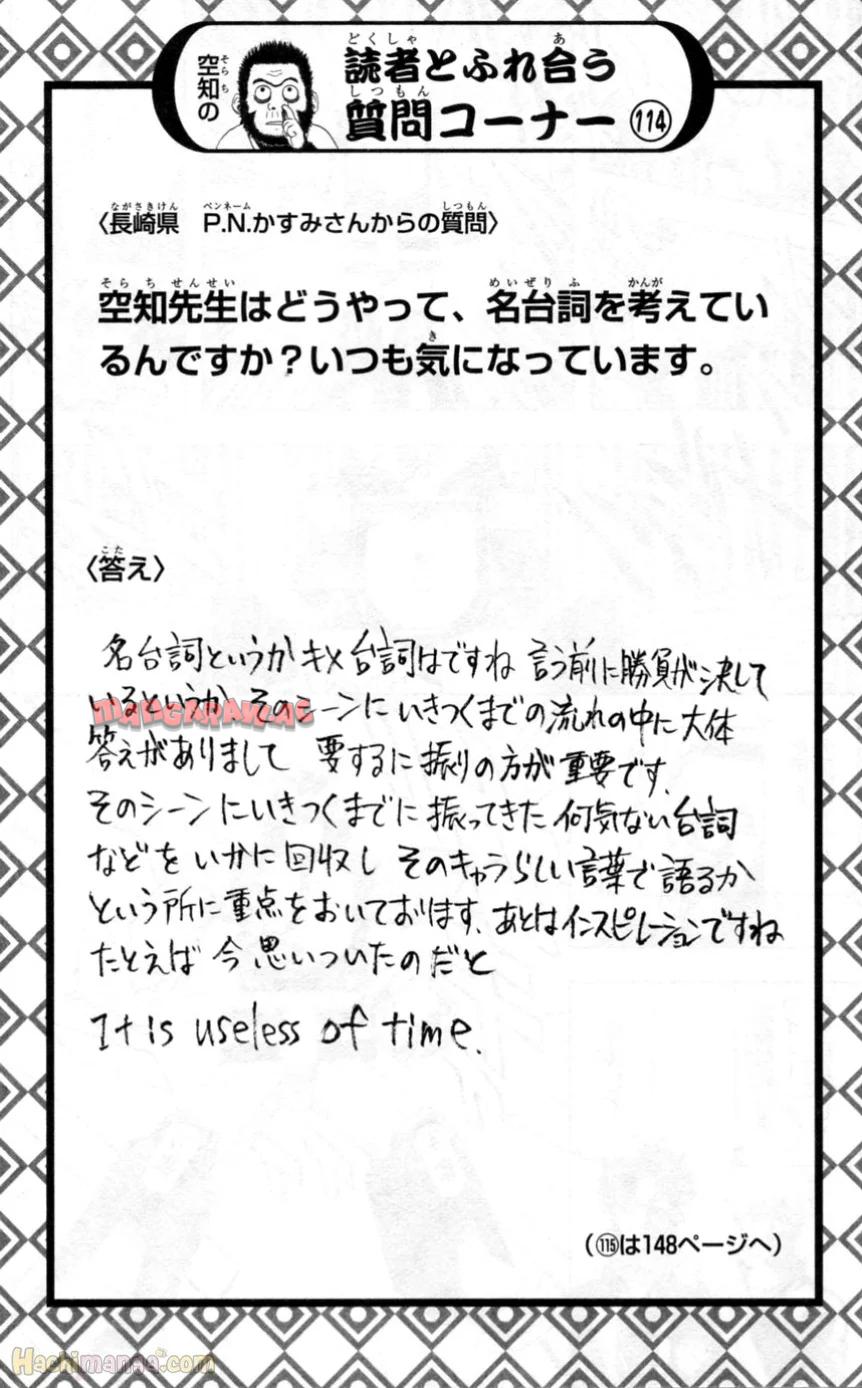 空知の
読者とふれ合う
質問コーナー 114
〈長崎県 P.N.かすみさんからの質問〉
空知先生はどうやって、名台詞を考えてい
るんですか?いつも気になっています。
〈答え〉
名台詞というかキメ台詞はですね 言う前に勝負が決して
いるというか そのシーンにいきつくまでの流れの中に大体
答えがありまして 要するに振りの方が重要です.
そのシーンにいきつくまでに振ってきた何気ない台詞
などをいかに回収し そのキャラらしい言葉で語るか
という所に重点をおいておます. あとはインスピレーションですね
たとえば 今思いついたのだと
It is useless of time.
(115は148ページへ)
MANGARAW.AC
Hachimanga.com